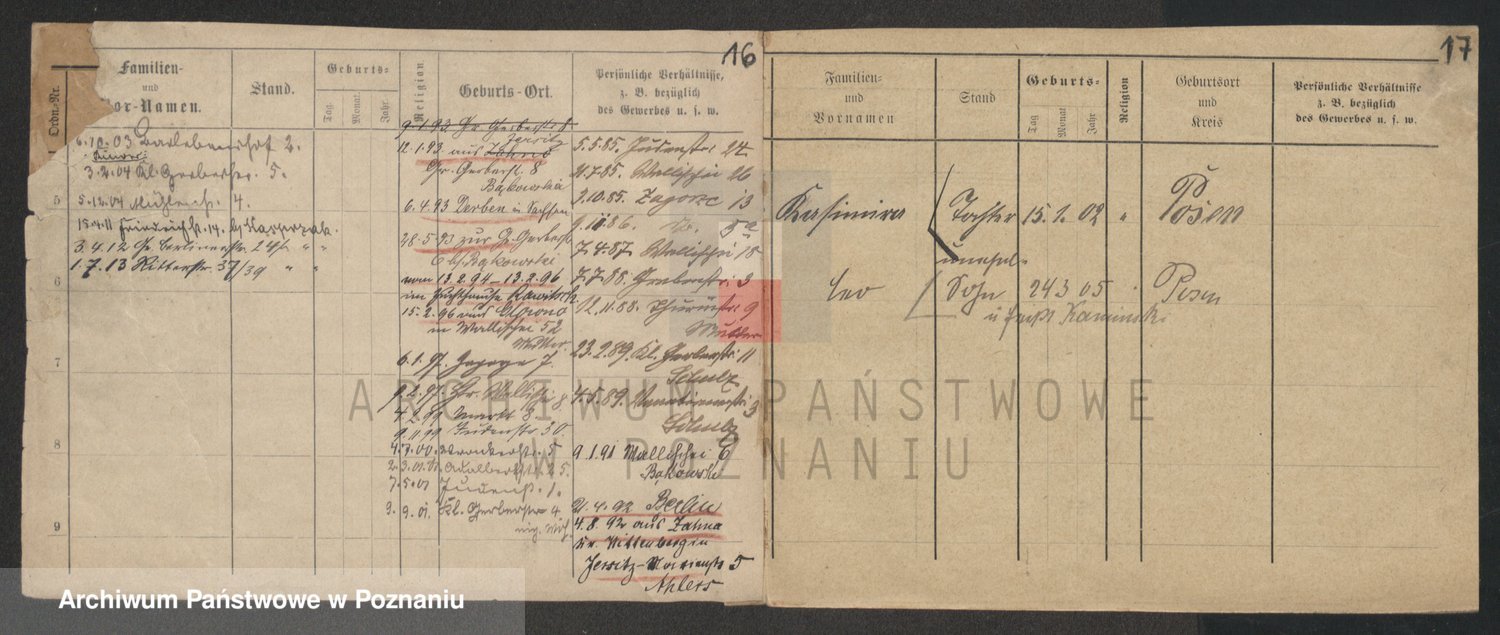 16
Ordn.-Nr.
Familien-
und
Vor-Namen.
Stand.
Geburts-
Tag.
Monat.
Jahr.
Religion
Geburts-Ort.
Persönliche Verhältnisse,
z. B. bezüglich
des Gewerbes u. s. w.
6.10.03 Bartelnerhof 2.
3.2.04 Kl. Gerberstr. 5.
5.12.04 Mühlenstr. 4.
15.4.11 Friedrichstr. 14. b/ Kasprzak.
3.4.12 Gr. Berlinerstr. " "
1.7.13 Ritterstr. 37/39 " "
5
6
7
8
9
9.1.93 Gr. Gerberstr 8
Jersitz
12.1.93 aus Zahna
Gr. Gerberst. 8
Bąkowski
6.4.93 Derben in Sachsen
28.5.93 zur Gr. Gerberst
6 bf. Bąkowski
vom 13.2.94-13.2.96
im Zuchthause Rawitsch
15.2.96 aus
in Wallischei 52
Mutter
6.1.97. Zagorze 7.
9.2.97 Gr. Wallischei 8
4.2.99 Markt 8.
9.11.99 Judenstr 30.
4.7.00. Wronkerstr. 5
2.3.01. Adalbertstr. 25.
7.5.01 Judenst. 1.
3.9.01. Kl. Gerberstr 4
5.5.85. Judenstr. 24
21.7.85. Wallischei 26
9.10.85. Zagorze 13
9.11.86. do. 5a
7.4.87 Wallischei 18
7.7.88. Grabenstr. 3
12.11.88. Thurmstr. 9
Mutter
23.2.89. Kl. Gerberstr. 11
Schulz
4.5.89. Venetianerstr. 3
Schulz
9.1.91 Wallischei 6
Bąkowski
21.4.92 Berlin
4.8.92 aus Zahna
Kr. Wittenberg in
Jersitz- 5
Ahlers
17
Familien-
und
Vornamen
Stand
Geburts-
Tag
Monat
Jahr
Religion
Geburtsort
und
Kreis
Persönliche Verhältnisse
z. B. bezüglich
des Gewerbes u. s. w.
Kasimira Tochter 15.1.02 " Posen
unehel.
Leo Sohn 24 3 05 " Posen
u heißt Kaminski
ARCHIWUM PAŃSTWOWE
W POZNANIU
Archiwum Państwowe w Poznaniu